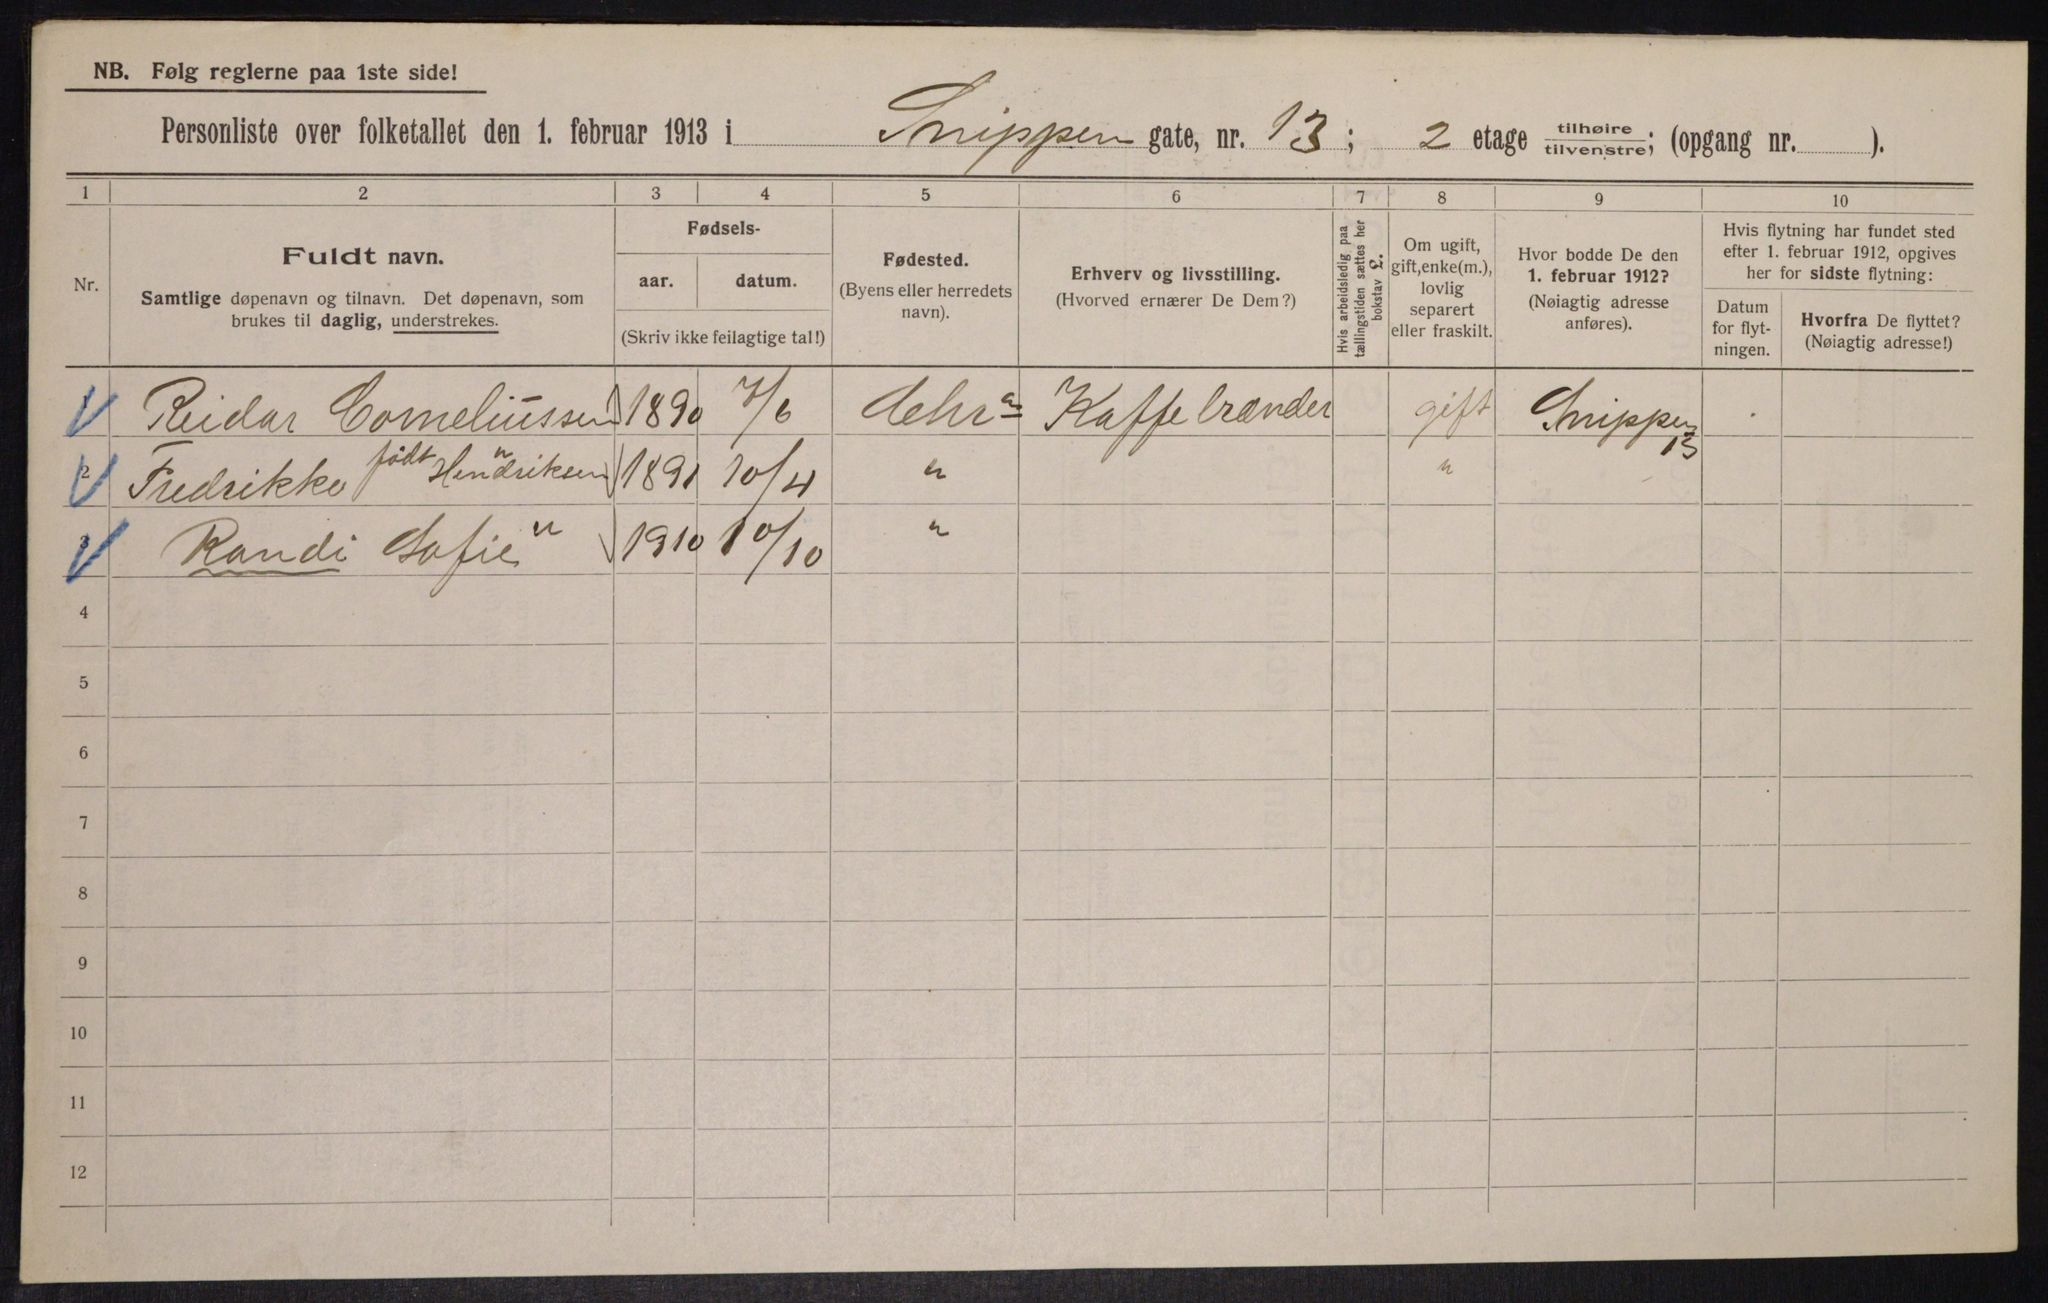 NB. Følg reglerne paa 1ste side!
Personliste over folketallet den 1. februar 1913 i Snippen gate, nr. 13; 2 etage tilhøire/tilvenstre; (opgang nr. ).
1 2 3 4 5 6 7 8 9 10
Nr.
Fuldt navn.
Samtlige døpenavn og tilnavn. Det døpenavn, som
brukes til daglig, understrekes.
Fødsels-
aar. datum.
(Skriv ikke feilagtige tal!)
Fødested.
(Byens eller herredets
navn).
Erhverv og livsstilling.
(Hvorved ernærer De Dem?)
Hvis arbeidsledig paa
tællingstiden sættes her
bokstav L.
Om ugift,
gift, enke(m.),
lovlig
separert
eller fraskilt.
Hvor bodde De den
1. februar 1912?
(Nøiagtig adresse
anføres).
Hvis flytning har fundet sted
efter 1. februar 1912, opgives
her for sidste flytning:
Datum
for flyt-
ningen.
Hvorfra De flyttet?
(Nøiagtig adresse!)
1 Reidar Corneliussen 1890 7/6 Chr a Kaffebrænder gift Snippen 13
2 Fredrikke " født Hendriksen 1891 10/4 " "
3 Randi Sofie " 1910 10/10 "
4
5
6
7
8
9
10
11
12